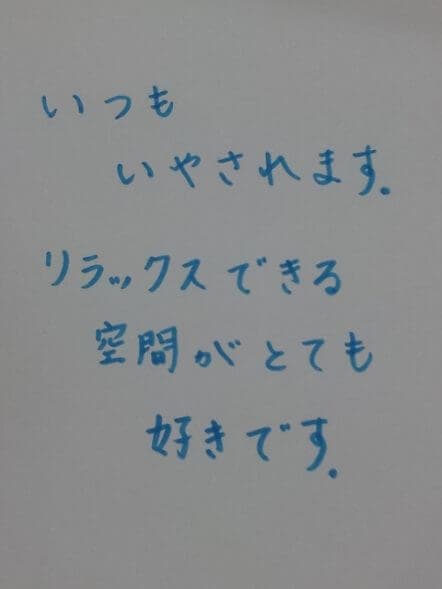 いつも
いやされます.
リラックスできる
空間がとても
好きです.